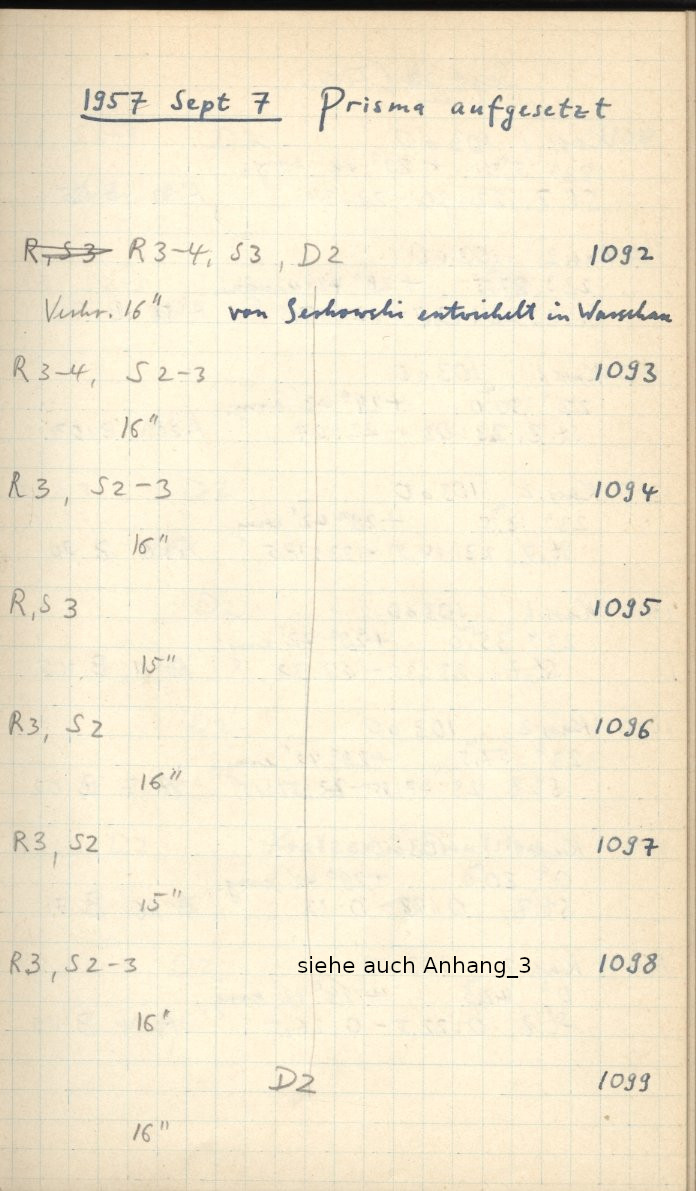 1957 Sept 7 Prisma aufgesetzt
R,S3 R3-4, S3, D2 1092
Verkr. 16" von Serkowski entwickelt in Warschau
R3-4, S2-3 1093
16"
R3, S2-3 1094
16"
R,S3 1095
15"
R3, S2 1096
16"
R3, S2 1097
15"
R3, S2-3 siehe auch Anhang_3 1098
16"
D2 1099
16"